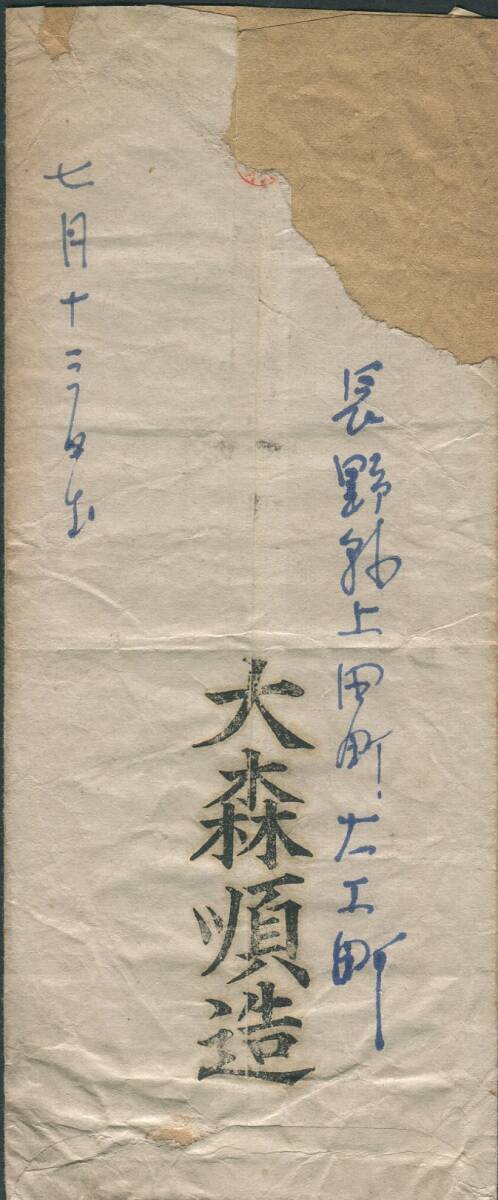 長野縣上田町大工町
大森順造
七月十三日出